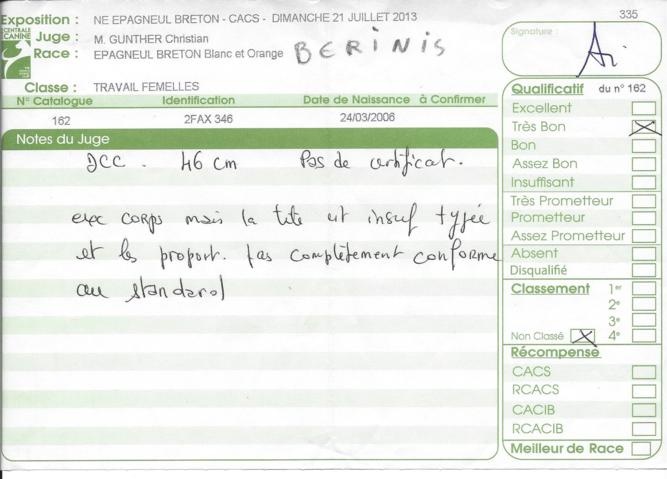 335
Exposition : NE EPAGNEUL BRETON - CACS - DIMANCHE 21 JUILLET 2013
CENTRALE CANINE
Juge : M. GUNTHER Christian
Race : EPAGNEUL BRETON Blanc et Orange BERINIS
Signature :
Classe : TRAVAIL FEMELLES
N° Catalogue Identification Date de Naissance à Confirmer
162 2FAX 346 24/03/2006
Notes du Juge
JCC. 46 cm Pas de certificat.
exc corps mais la tête est insuf typée
et les proport. pas complètement conforme
au standard
Qualificatif du n° 162
Excellent
Très Bon X
Bon
Assez Bon
Insuffisant
Très Prometteur
Prometteur
Assez Prometteur
Absent
Disqualifié
Classement 1er
2e
3e
Non Classé X 4e
Récompense
CACS
RCACS
CACIB
RCACIB
Meilleur de Race